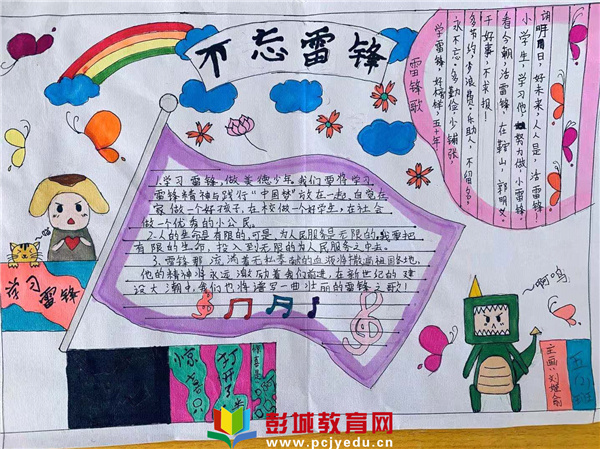 不忘雷锋
雷锋歌
学雷锋,好榜样,五十年,
永不忘。多勤俭,少铺张,
多节约,少浪费。乐助人,不留名,
于好事,不求报!
看今朝,活雷锋,在鞍山,郭明义。
小学生,学习他,努力做,小雷锋。
明日,好未来,人人是,活雷锋!
1.学习雷锋,做美德少年。我们要将学习
雷锋精神与践行“中国梦”放在一起,自觉在
家做一个好孩子,在校做一个好学生,在社会
做一个优秀的小公民。
2.人的生命是有限的,可是为人民服务是无限的,我要把
有限的生命,投入到无限的为人民服务之中去。
3.雷锋那流淌着无私奉献的血液将撒遍祖国各地,
他的精神将永远激励着我们前进,在新世纪的建
设大潮中,我们也将谱写一曲壮丽的雷锋之歌!
学习雷锋
~啊呜
打开了
主画:刘
彭城教育网
www.pcjyedu.cn